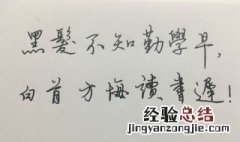 黑髮不知勤學早,
白首方悔讀書遲!
经验总结
jingyanzongjie.com